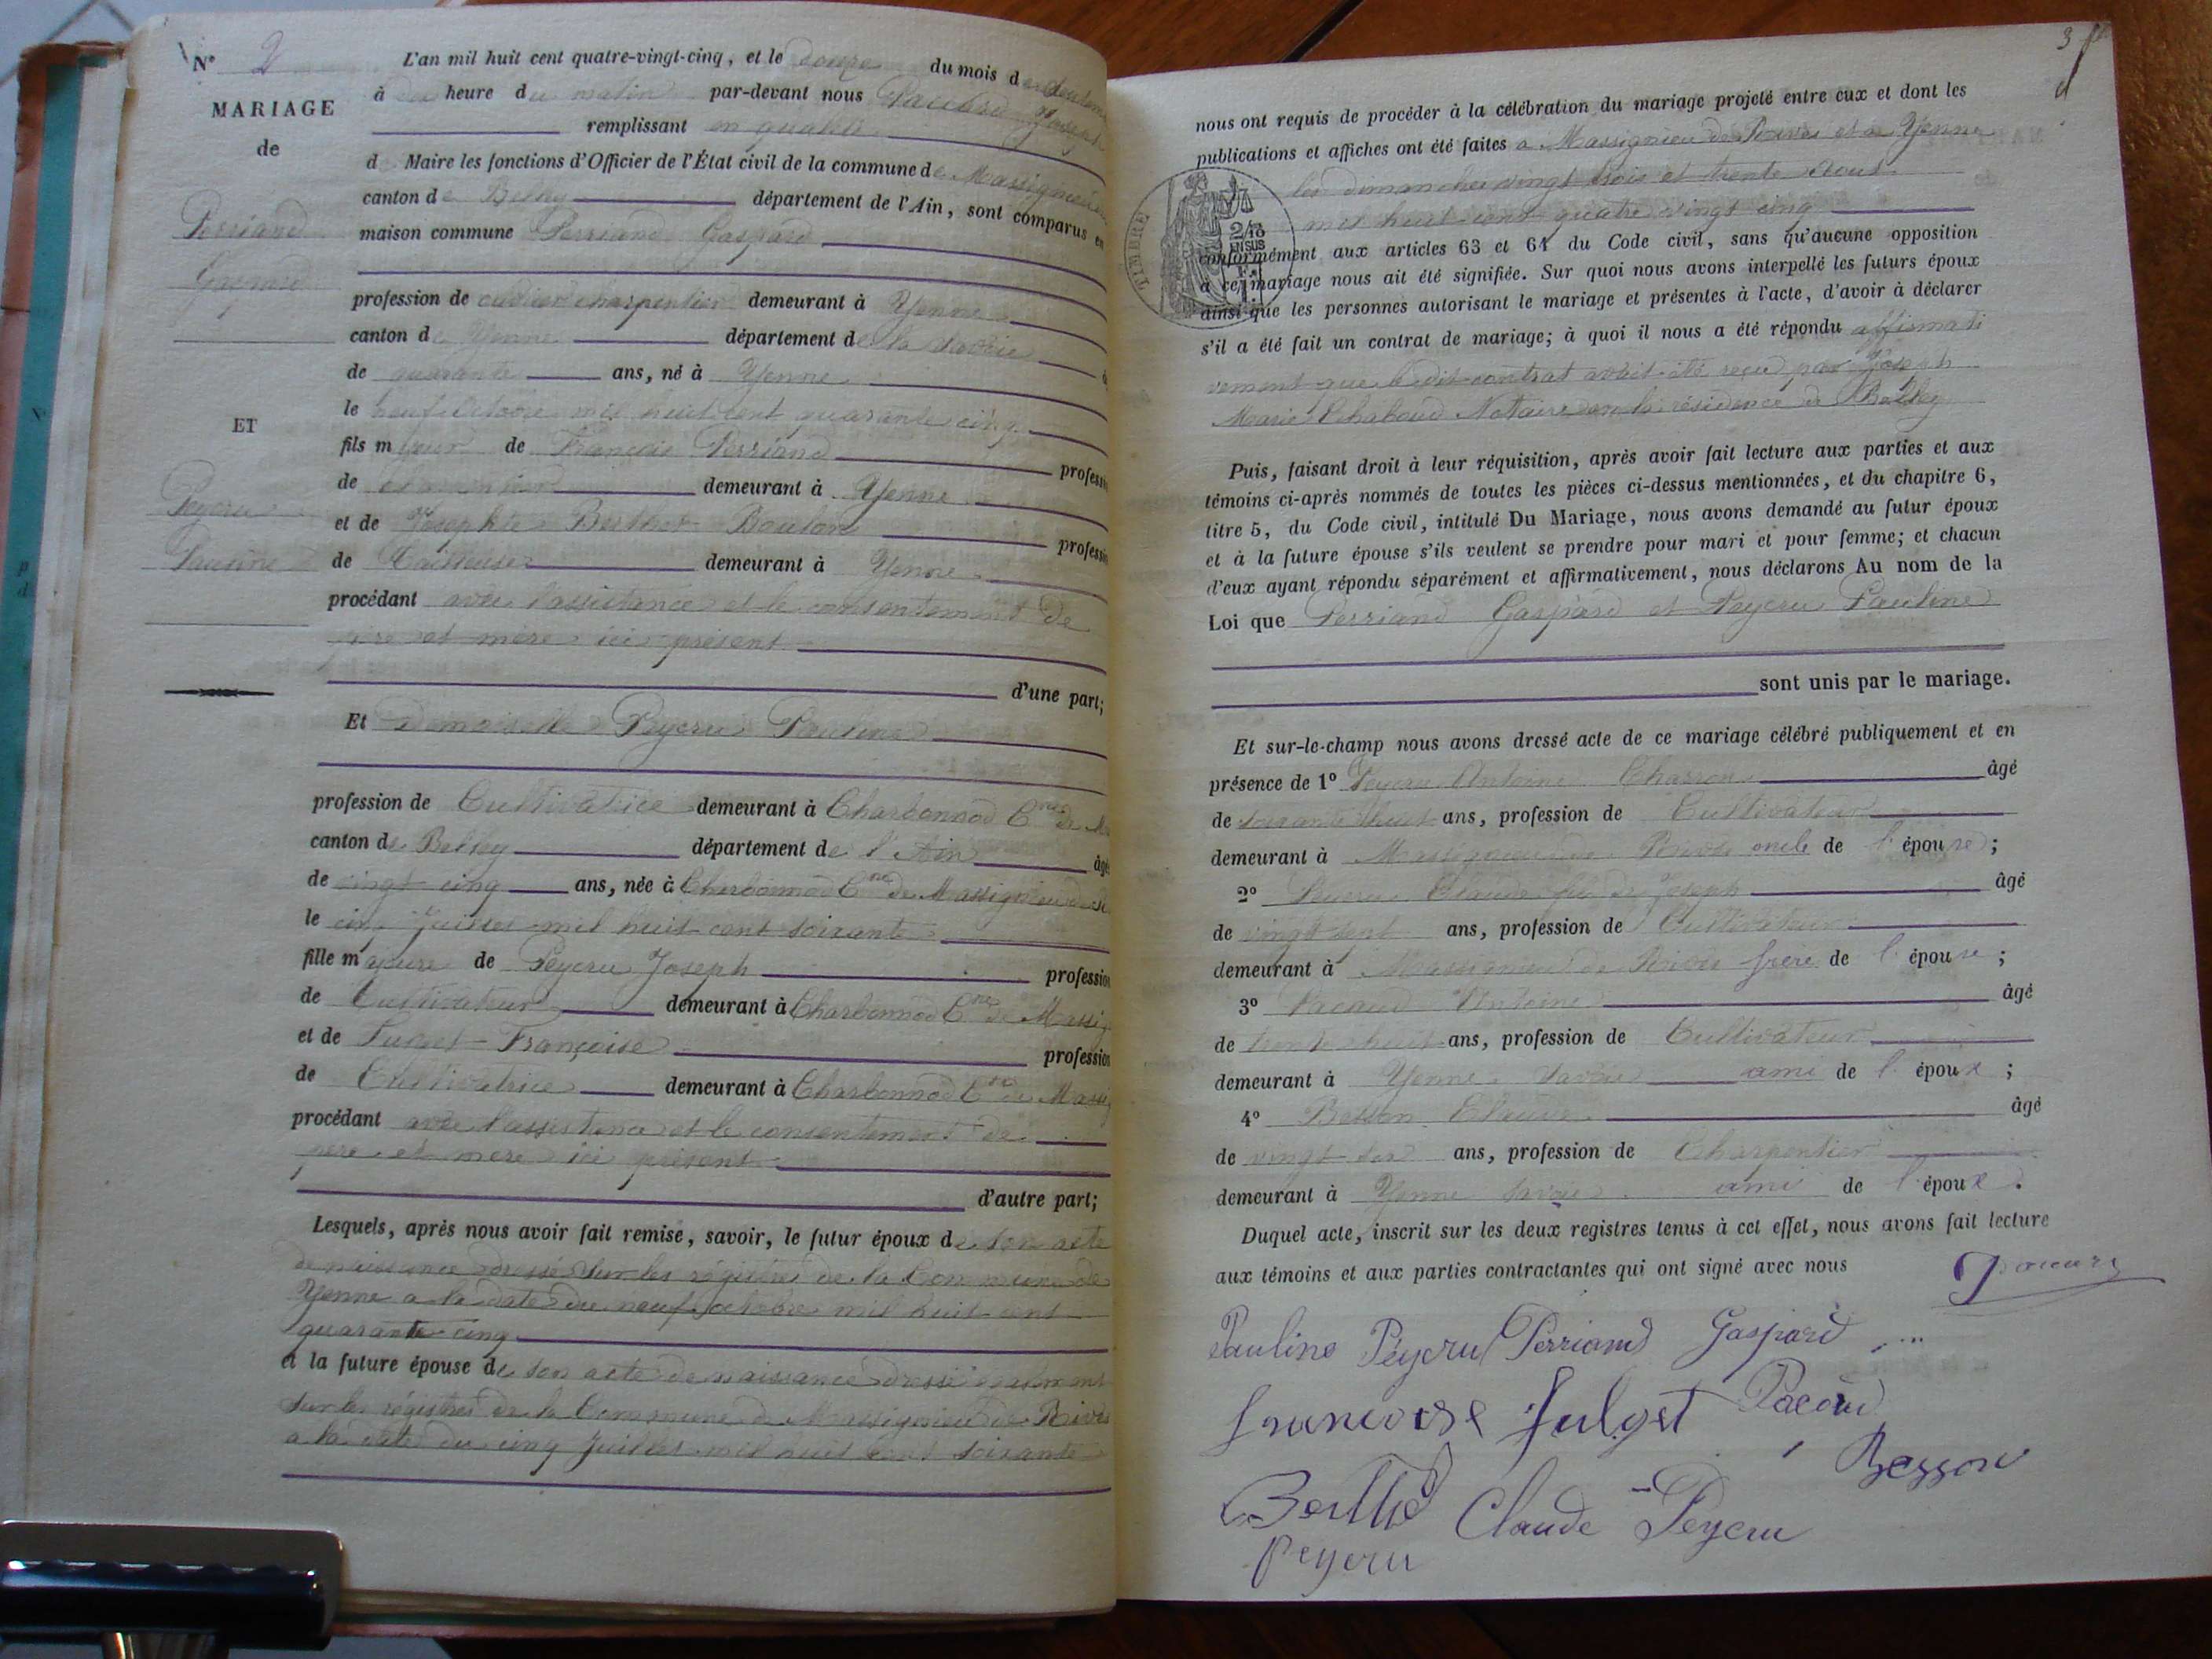 N° 2
MARIAGE
de
Perriand
Gaspard
ET
Peycru
Pauline
L'an mil huit cent quatre-vingt-cinq, et le douze du mois de
à heure du matin par-devant nous Joseph
remplissant en qualité
d Maire les fonctions d'Officier de l'État civil de la commune de Massignieu
canton de Belley département de l'Ain, sont comparus en
maison commune Perriand Gaspard
profession de charpentier demeurant à Yenne
canton de Yenne département de la Savoie
de quarante ans, né à Yenne
le neuf Octobre mil huit cent quarante cinq
fils majeur de François Perriand profession
de demeurant à Yenne
et de Josephte Berthet Boulon profession
de Tailleuse demeurant à Yenne
procédant avec l'assistance et le consentement de
père et mère ici présent
d'une part;
Et demoiselle Peycru Pauline
profession de Cultivatrice demeurant à Charbonnod Cne de M
canton de Belley département de l'Ain âgée
de vingt cinq ans, née à Charbonnod Cne de Massignieu de
le cinq Juillet mil huit cent soixante
fille majeure de Peycru Joseph profession
de Cultivateur demeurant à Charbonnod Cne de Massig
et de Françoise profession
de Cultivatrice demeurant à Charbonnod Cne de Massig
procédant avec l'assistance et le consentement de
père et mère ici présent
d'autre part;
Lesquels, après nous avoir fait remise, savoir, le futur époux de son acte
de naissance dressé sur les régistres de la Commune de
Yenne a la date du neuf octobre mil huit cent
quarante cinq
et la future épouse de son acte de naissance dressé également
sur les régistres de la Commune de Massignieu de Rives
a la date du cinq Juillet mil huit cent soixante
3
nous ont requis de procéder à la célébration du mariage projeté entre eux et dont les
publications et affiches ont été faites a Massignieu de Rives et a Yenne
les dimanches vingt trois et trente Aout
mil huit cent quatre vingt cinq
TIMBRE
2/10
EN SUS
conformément aux articles 63 et 64 du Code civil, sans qu'aucune opposition
à ce mariage nous ait été signifiée. Sur quoi nous avons interpellé les futurs époux
ainsi que les personnes autorisant le mariage et présentes à l'acte, d'avoir à déclarer
s'il a été fait un contrat de mariage; à quoi il nous a été répondu affirmati
vement que le dit contrat avait été reçu par Joseph
Marie Chaboud Notaire a la résidence de Belley
Puis, faisant droit à leur réquisition, après avoir fait lecture aux parties et aux
témoins ci-après nommés de toutes les pièces ci-dessus mentionnées, et du chapitre 6,
titre 5, du Code civil, intitulé Du Mariage, nous avons demandé au futur époux
et à la future épouse s'ils veulent se prendre pour mari et pour femme; et chacun
d'eux ayant répondu séparément et affirmativement, nous déclarons Au nom de la
Loi que Perriand Gaspard et Peycru Pauline
sont unis par le mariage.
Et sur-le-champ nous avons dressé acte de ce mariage célébré publiquement et en
présence de 1° Peycru Antoine Charron âgé
de soixante huit ans, profession de Cultivateur
demeurant à Massignieu de Rives oncle de l'épouse;
2° Peycru Claude fils de Joseph âgé
de vingt sept ans, profession de Cultivateur
demeurant à Massignieu de Rives frère de l'épouse;
3° Pacoud Antoine âgé
de trente huit ans, profession de Cultivateur
demeurant à Yenne Savoie ami de l'époux;
4° Besson Claude âgé
de vingt ans, profession de Charpentier
demeurant à Yenne Savoie ami de l'époux.
Duquel acte, inscrit sur les deux registres tenus à cet effet, nous avons fait lecture
aux témoins et aux parties contractantes qui ont signé avec nous
Pauline Péycru Perriand Gaspard
francoise fulget Pacoud
Besson
Berthet Claude Peycru
Peycru